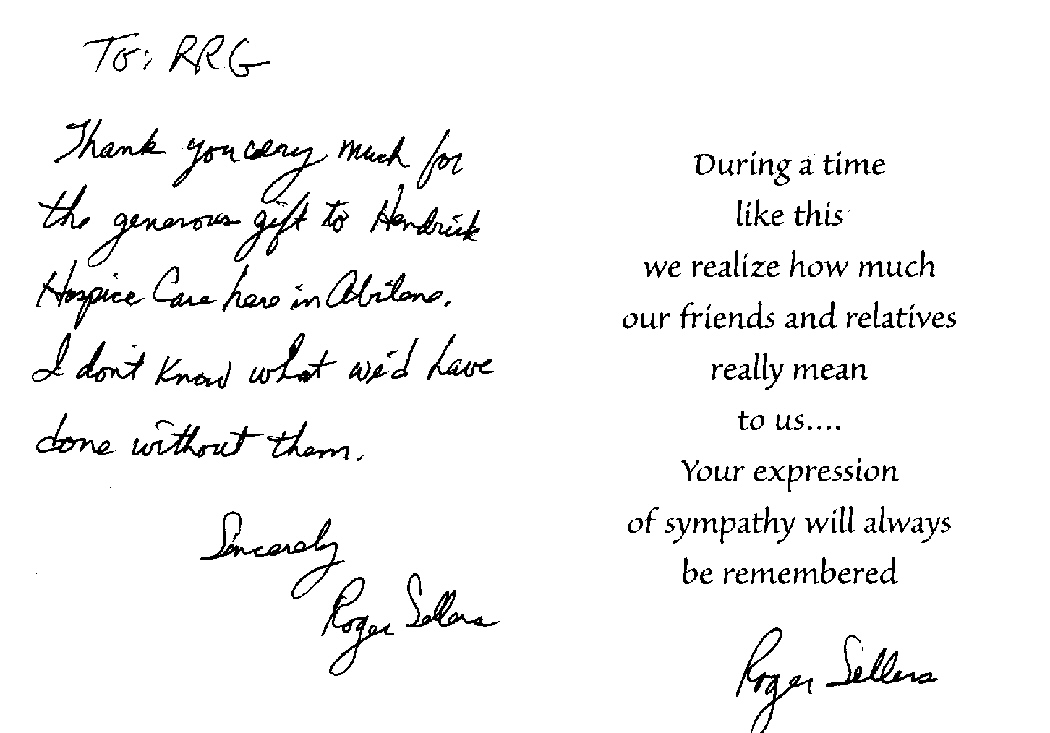 To: RRG
Thank you very much for
the generous gift to Hendrick
Hospice Care here in Abilene.
I don't know what we'd have
done without them.
Sincerely
Roger Sellers
During a time
like this
we realize how much
our friends and relatives
really mean
to us....
Your expression
of sympathy will always
be remembered
Roger Sellers